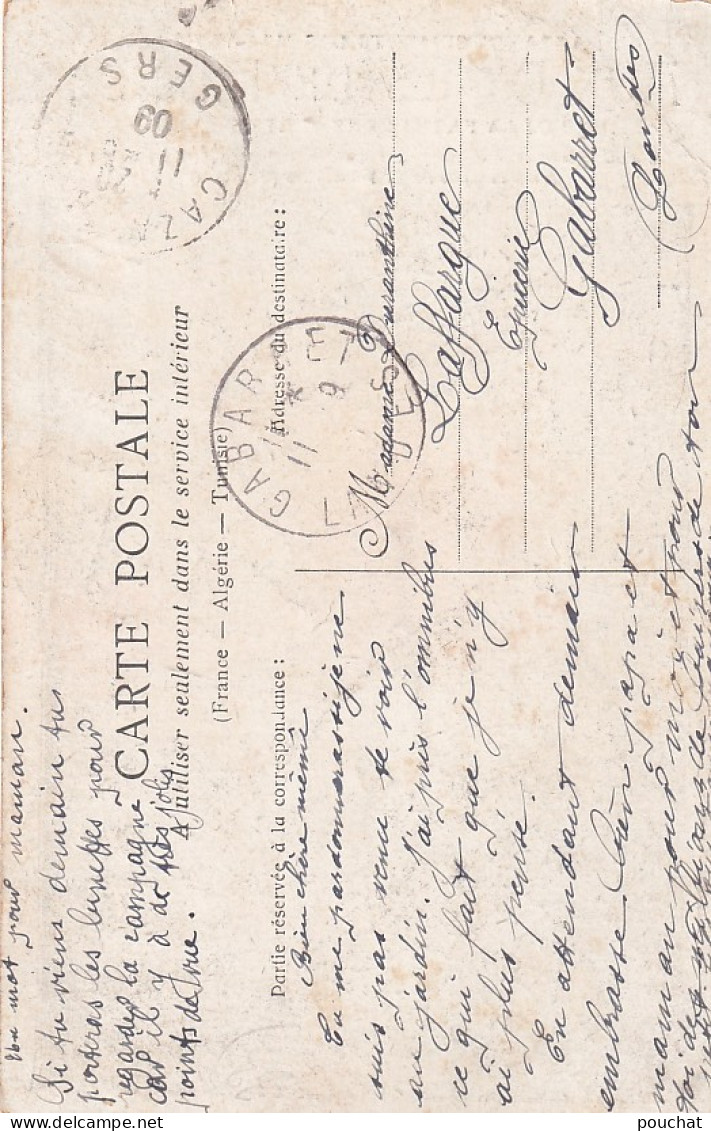 Un mot pour maman.
Si tu viens demain tu
porteras les lunettes pour
regarder la campagne
car il y a de très jolis
points de vue.
CARTE POSTALE
A utiliser seulement dans le service intérieur
(France — Algérie — Tunisie)
Partie réservée à la correspondance :
Bien chère mémé
Tu me pardonneras si je ne
suis pas venue te voir
au jardin. J'ai pris l'omnibus
ce qui fait que je n'y
ai plus pensé.
En attendant demain
embrasse bien papa et
maman pour moi et pour
toi de
Adresse du destinataire :
Madame Duranthine
Laffargue
Epicerie
Gabarret
(Landes)
CAZA
11
09
GERS
GABARRET
11
9
LANDES
pouchat